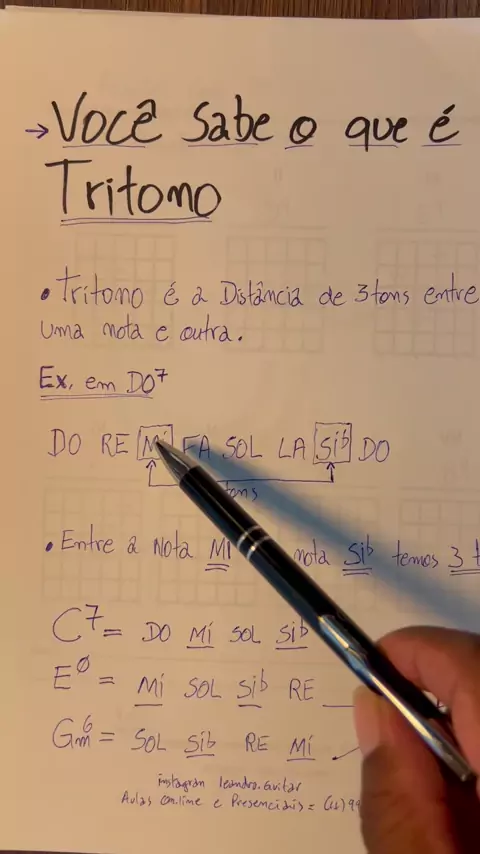 → Você Sabe o que é
Tritomo
• Tritomo é a Distância de 3 tons entre
uma nota e outra.
Ex. em DO⁷
DO RE Mi FA SOL LA Sib DO
• Entre a Nota Mi nota Sib temos 3
C⁷ = DO Mi SOL Sib
EØ = Mi SOL Sib RE
Gm⁶ = SOL Sib RE Mi
instagran leandro.Guitar
Aulas on.line e Presenciais =